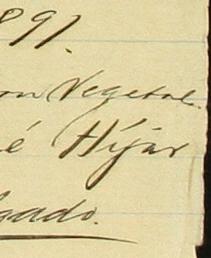 891.
on Vegetal.
é Híjar
gado.